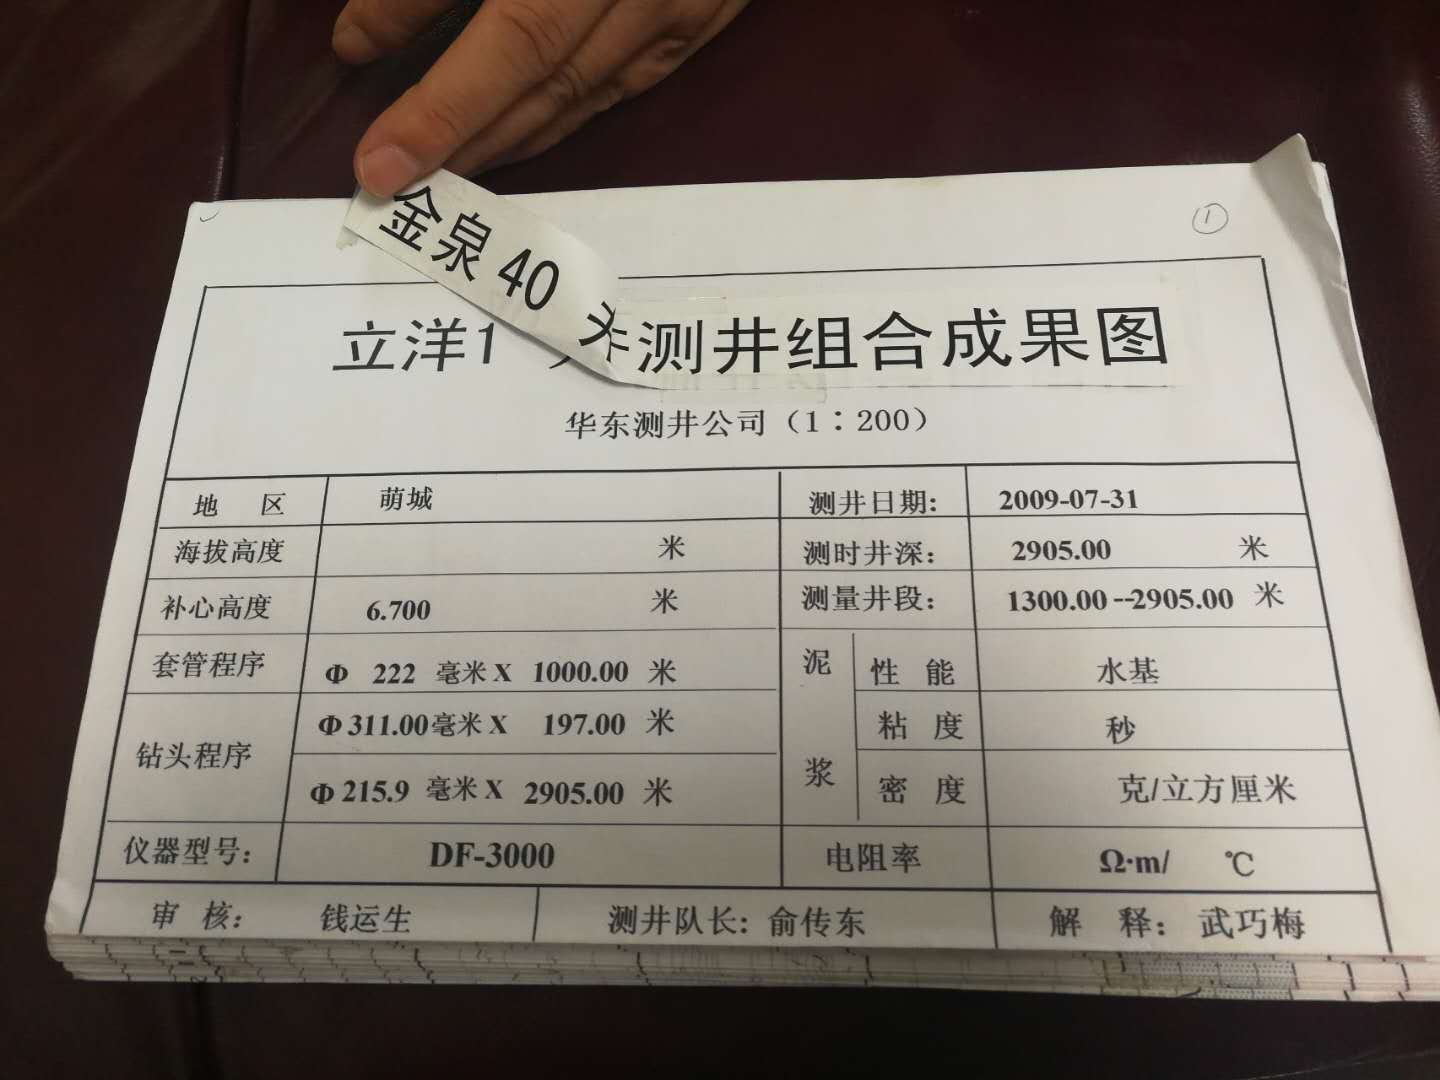 ①
金泉 40 井测井组合成果图
立洋1
华东测井公司（1：200）
地 区 萌城 测井日期: 2009-07-31
海拔高度 米 测时井深: 2905.00 米
补心高度 6.700 米 测量井段: 1300.00--2905.00 米
套管程序 Φ 222 毫米 X 1000.00 米 泥浆 性 能 水基
钻头程序 Φ 311.00毫米 X 197.00 米 粘 度 秒
Φ 215.9 毫米 X 2905.00 米 密 度 克/立方厘米
仪器型号: DF-3000 电阻率 Ω·m/ ℃
审 核: 钱运生 测井队长: 俞传东 解 释: 武巧梅